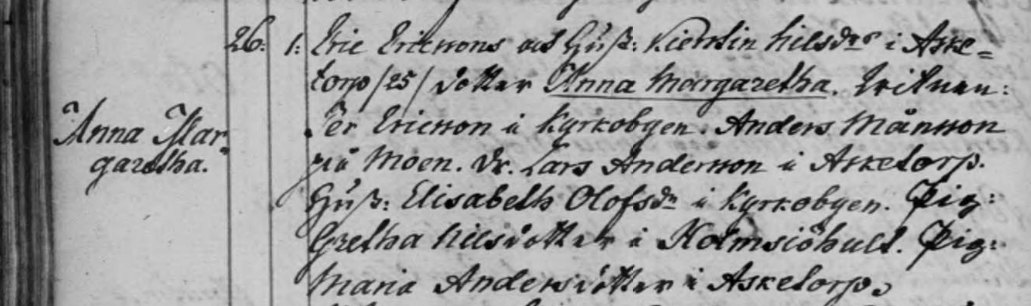 26. 1. Eric Ericssons och Hust: Kierstin Nilsdrs i Aske=
torp /25/ dotter Anna Margaretha. Wittnen:
Per Ericsson i Kyrkobyen. Anders Månsson
Anna Mar
garetha.
på Moen. Dr. Lars Andersson i Asketorp.
Hust: Elisabeth Olofsdr i Kyrkobyen. Pig:
Gretha Nilsdotter i Holmsjöhult. Pig:
Maria Andersdotter i Asketorp.